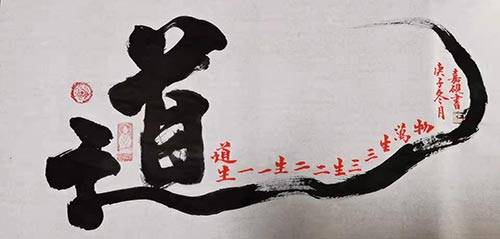 道
道生一一生二二生三三生萬物
庚子冬月
嘉硯書